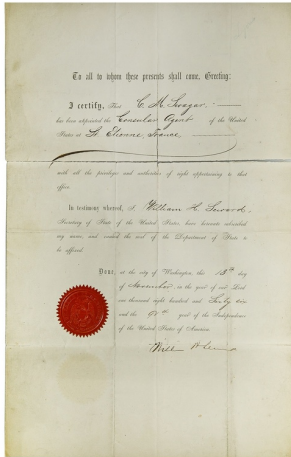 To all to whom these presents shall come, Greeting:
I certify, That C. M. Swagar
has been appointed the Consular Agent of the United
States at St. Etienne, France
with all the privileges and authorities of right appertaining to that
office.
In testimony whereof, I William H. Seward,
Secretary of State of the United States, have hereunto subscribed
my name, and caused the seal of the Department of State to
be affixed.
Done, at the city of Washington, this 13th day
of November, in the year of our Lord
one thousand eight hundred and Sixty six
and the 91st year of the Independence
of the United States of America.